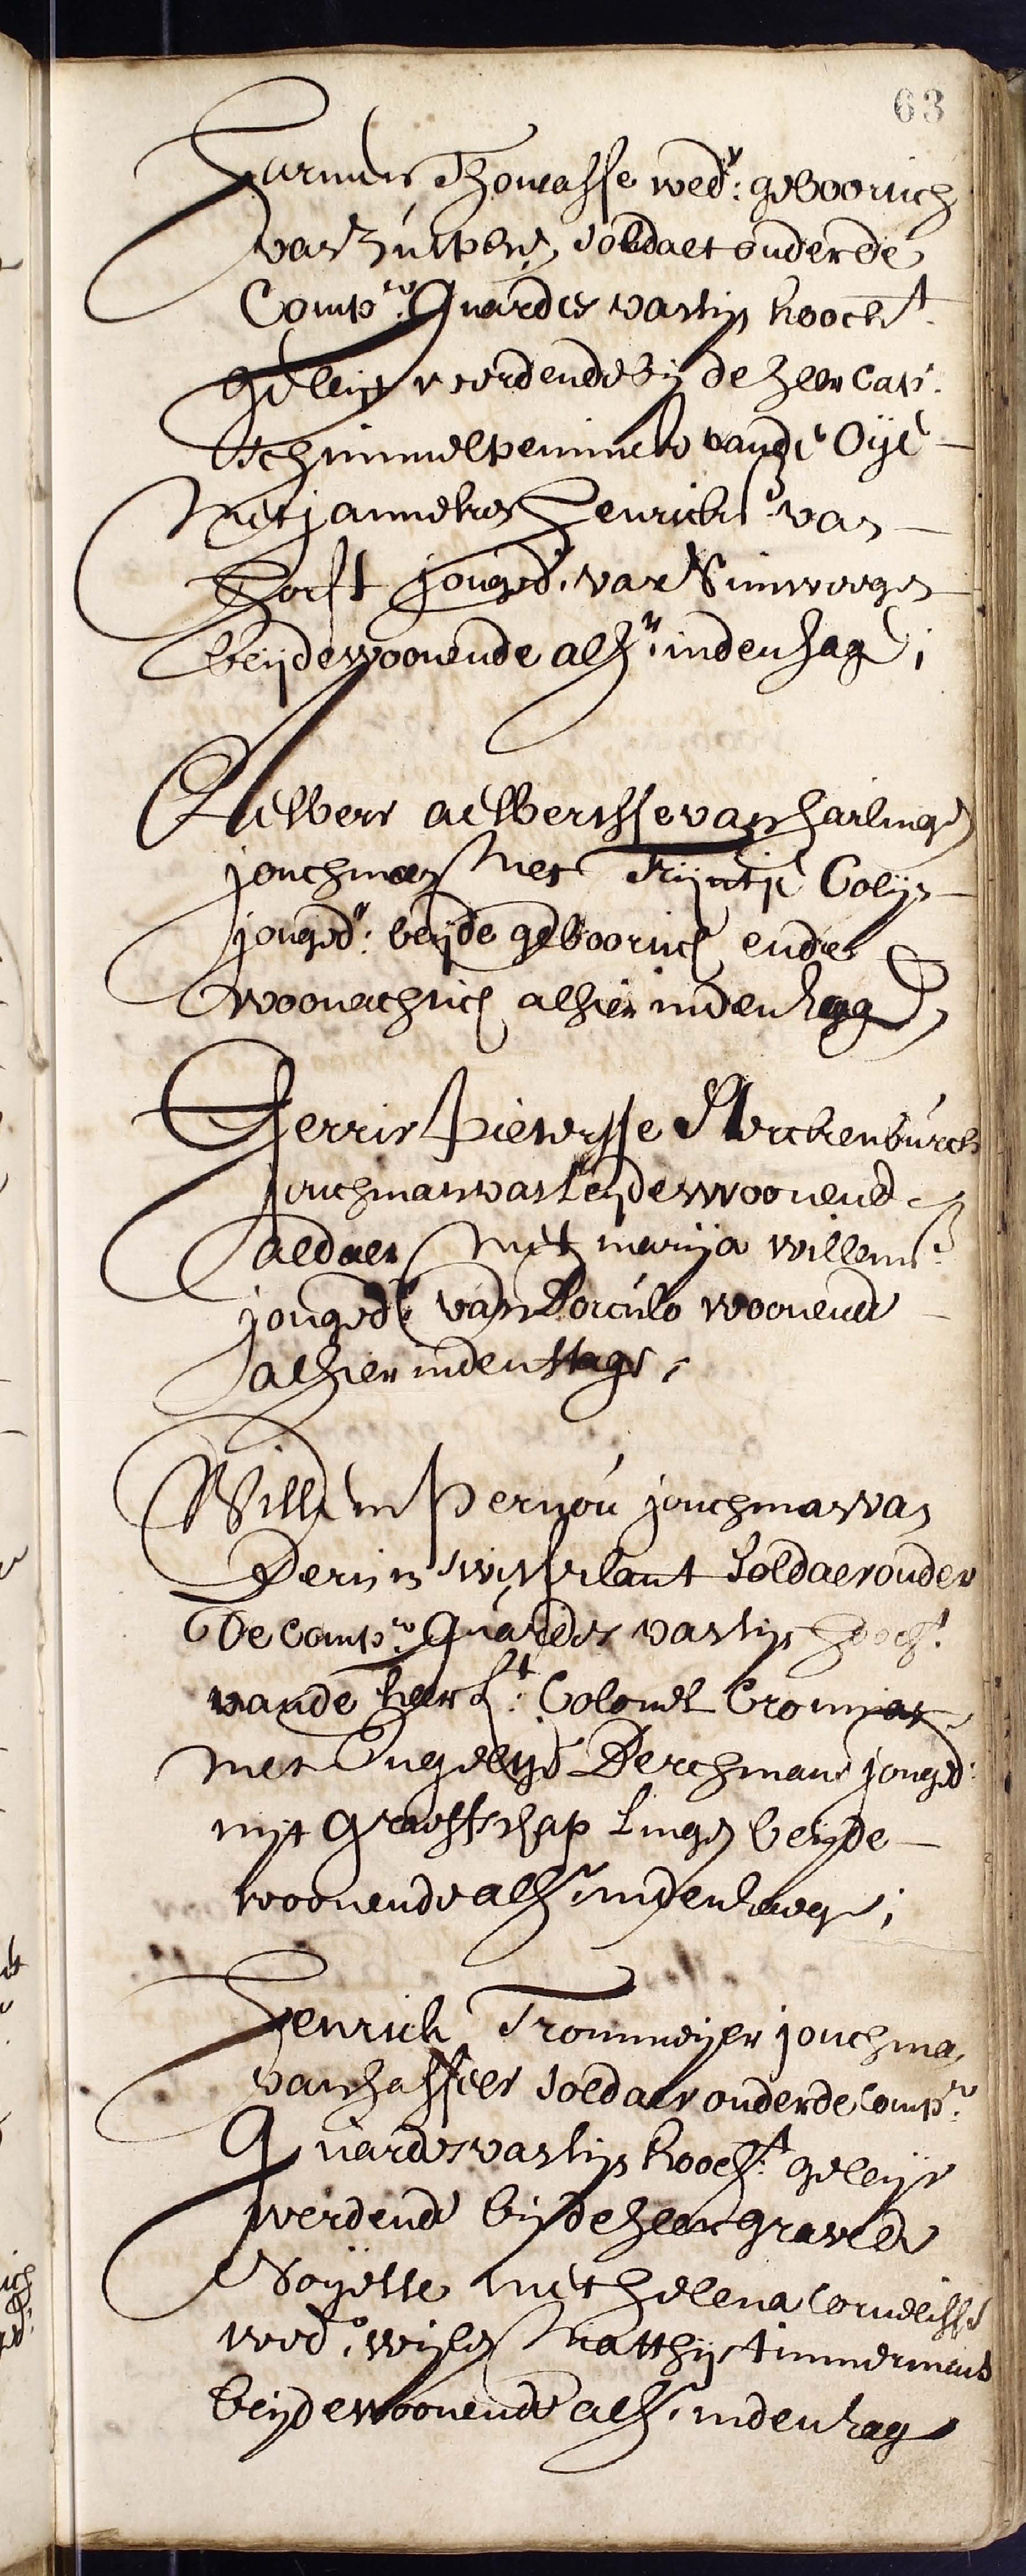 63
Harmen Thomasse wedr: geboortich
van Zutphen, soldaet onder de
Compe: Guardes van sijn hoocht.
geleijt werdende bij de heer Cap:
Schimmelpenninck vande Oije
met janneken Henrickx van
Horst jonged. van Nimweegen
beijde woonende alhr: inden hage;
Aelbert aelbertsse van harlingen
jonchman met Trijntje Colijn
jonged: beijde geboortich ende
woonachtich alhier inden hage
Gerrit Pietersse Sterckenburch
jonchman van Leijde woonende
aldaer met marija willems
jonged: van Borculo woonende
alhier inden Hage,
Willem Pernou jonchman van
Bern in switserlant soldaet onder
De Compe: Guardes van sijn hoocht.
vande heer Lt: Colonel
met Engeltje Berchmans jonged:
uijt Graeffschap Lingen beijde
woonende alhr inden hage;
Henrick Trommeijer jonchman
van hasselt soldaet onder de Compe:
Guardes van sijn hoocht: geleijt
werdende bij de heer grave de
Noijelle met helena Cornelisse
wede: wijlen Matthijs timmermans
beijde woonende alhr. inden hage